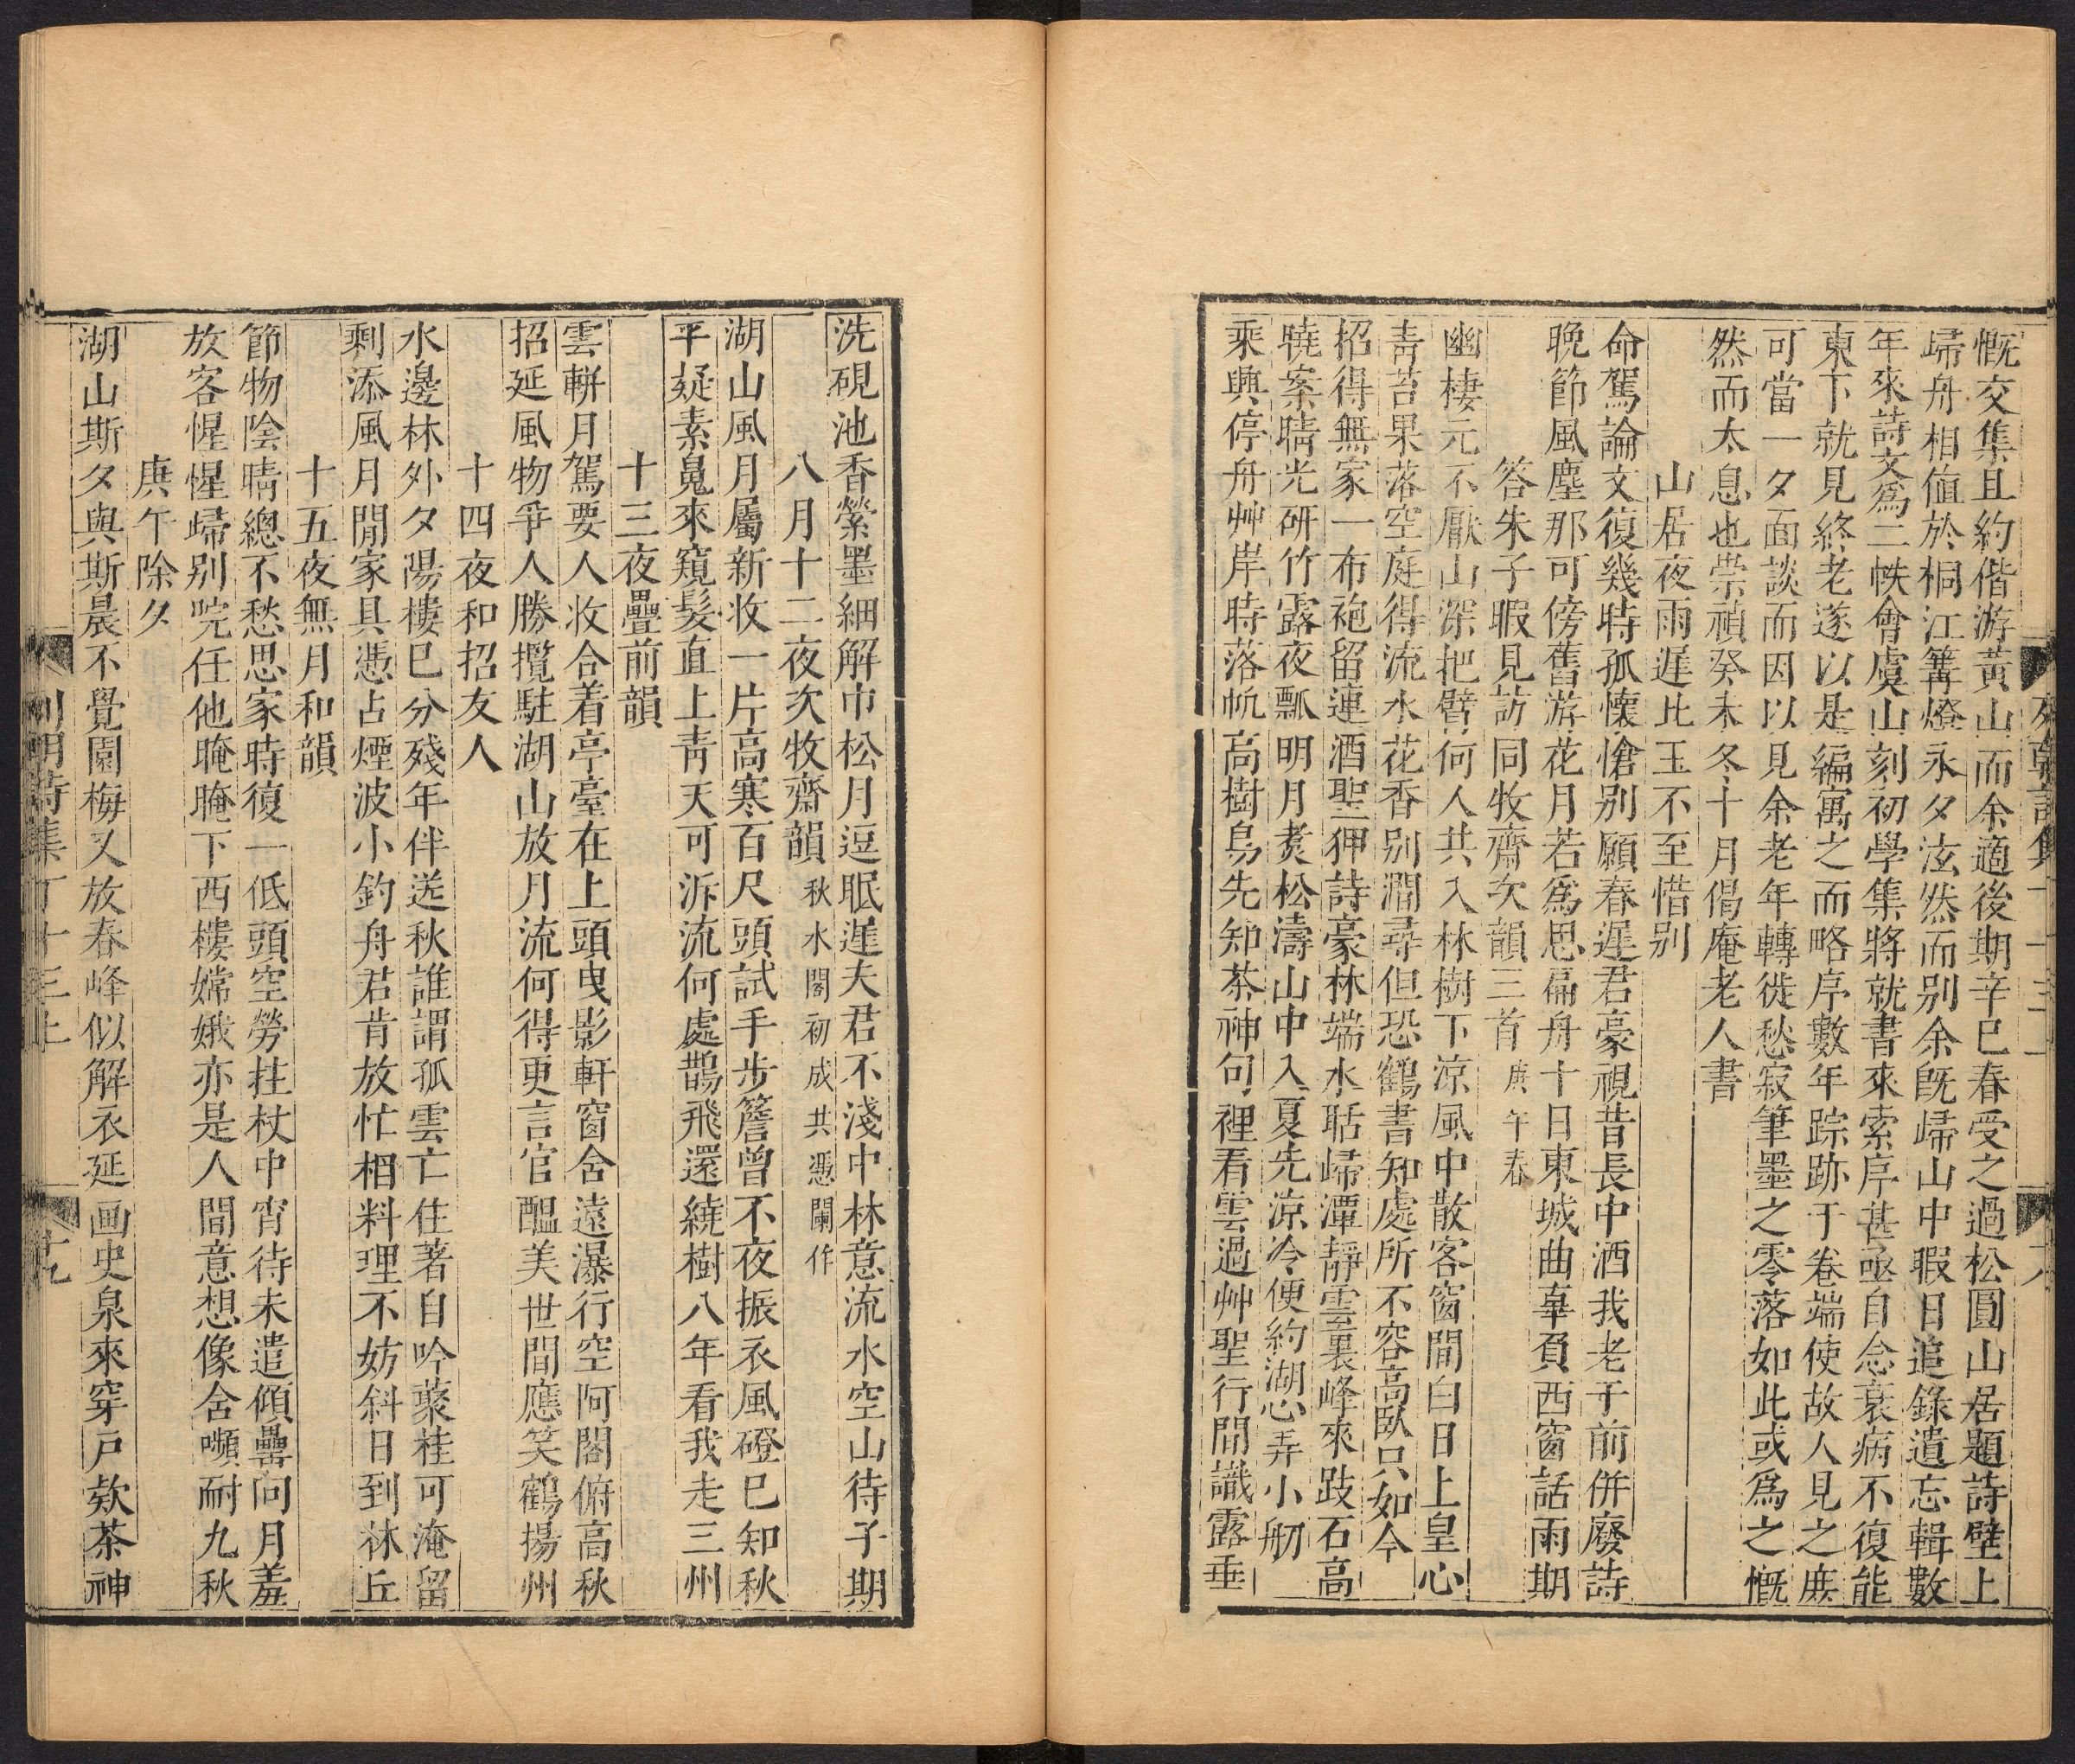 慨交集且約偕游黃山而余適後期辛巳春受之過松圓山居題詩壁上
歸舟相值於桐江篝燈永夕泫然而別余旣歸山中暇日追錄遺忘輯數
年來詩文爲二帙會虞山刻初學集將就書來索序甚亟自念衰病不復能
東下就見終老遂以是編寓之而略序數年踪跡于卷端使故人見之庶
可當一夕面談而因以見余老年轉徙愁寂筆墨之零落如此或爲之慨
然而太息也崇禎癸未冬十月偈庵老人書
山居夜雨遲比玉不至惜別
命駕論文復幾時孤懷愴別願春遲君豪視昔長中酒我老于前併廢詩
晚節風塵那可傍舊游花月若爲思扁舟十日東城曲辜負西窗話雨期
答朱子暇見訪同牧齋次韻三首庚午春
幽棲元不厭山深把臂何人共入林樹下涼風中散客窗間白日上皇心
靑苔果落空庭得流水花香別澗尋但恐鶴書知處所不容高臥只如今
招得無家一布袍留連酒聖狎詩豪林端水聒歸潭靜雲裏峰來跂石高
曉案晴光硏竹露夜瓢明月煑松濤山中入夏先涼冷便約湖心弄小舠
乘興停舟艸岸時落帆高樹鳥先知茶神句裡看雲過艸聖行間識露垂
洗硯池香縈墨細解巾松月逗眠遲夫君不淺中林意流水空山待子期
八月十二夜次牧齋韻秋水閣初成共憑闌作
湖山風月屬新收一片高寒百尺頭試手步簷曾不夜振衣風磴巳知秋
平疑素鬼來窺髮直上靑天可泝流何處鵲飛還繞樹八年看我走三州
十三夜疊前韻
雲軿月駕要人收合着亭臺在上頭曳影軒窗舍遠瀑行空阿閣俯高秋
招延風物爭人勝攬駐湖山放月流何得更言官醖美世間應笑鶴揚州
十四夜和招友人
水邊林外夕陽樓巳分殘年伴送秋誰謂孤雲亡住著自吟藂桂可淹留
剩添風月閒家具憑占煙波小釣舟君肯放忙相料理不妨斜日到林丘
十五夜無月和韻
節物陰晴總不愁思家時復一低頭空勞拄杖中宵待未遣傾罍向月羞
放客惺惺歸別院任他晻晻下西樓嫦娥亦是人間意想像含嚬耐九秋
庚午除夕
湖山斯夕與斯晨不覺園梅又放春峰似解衣延画史泉來穿戶欵茶神
列朝詩集丁十三上
十九